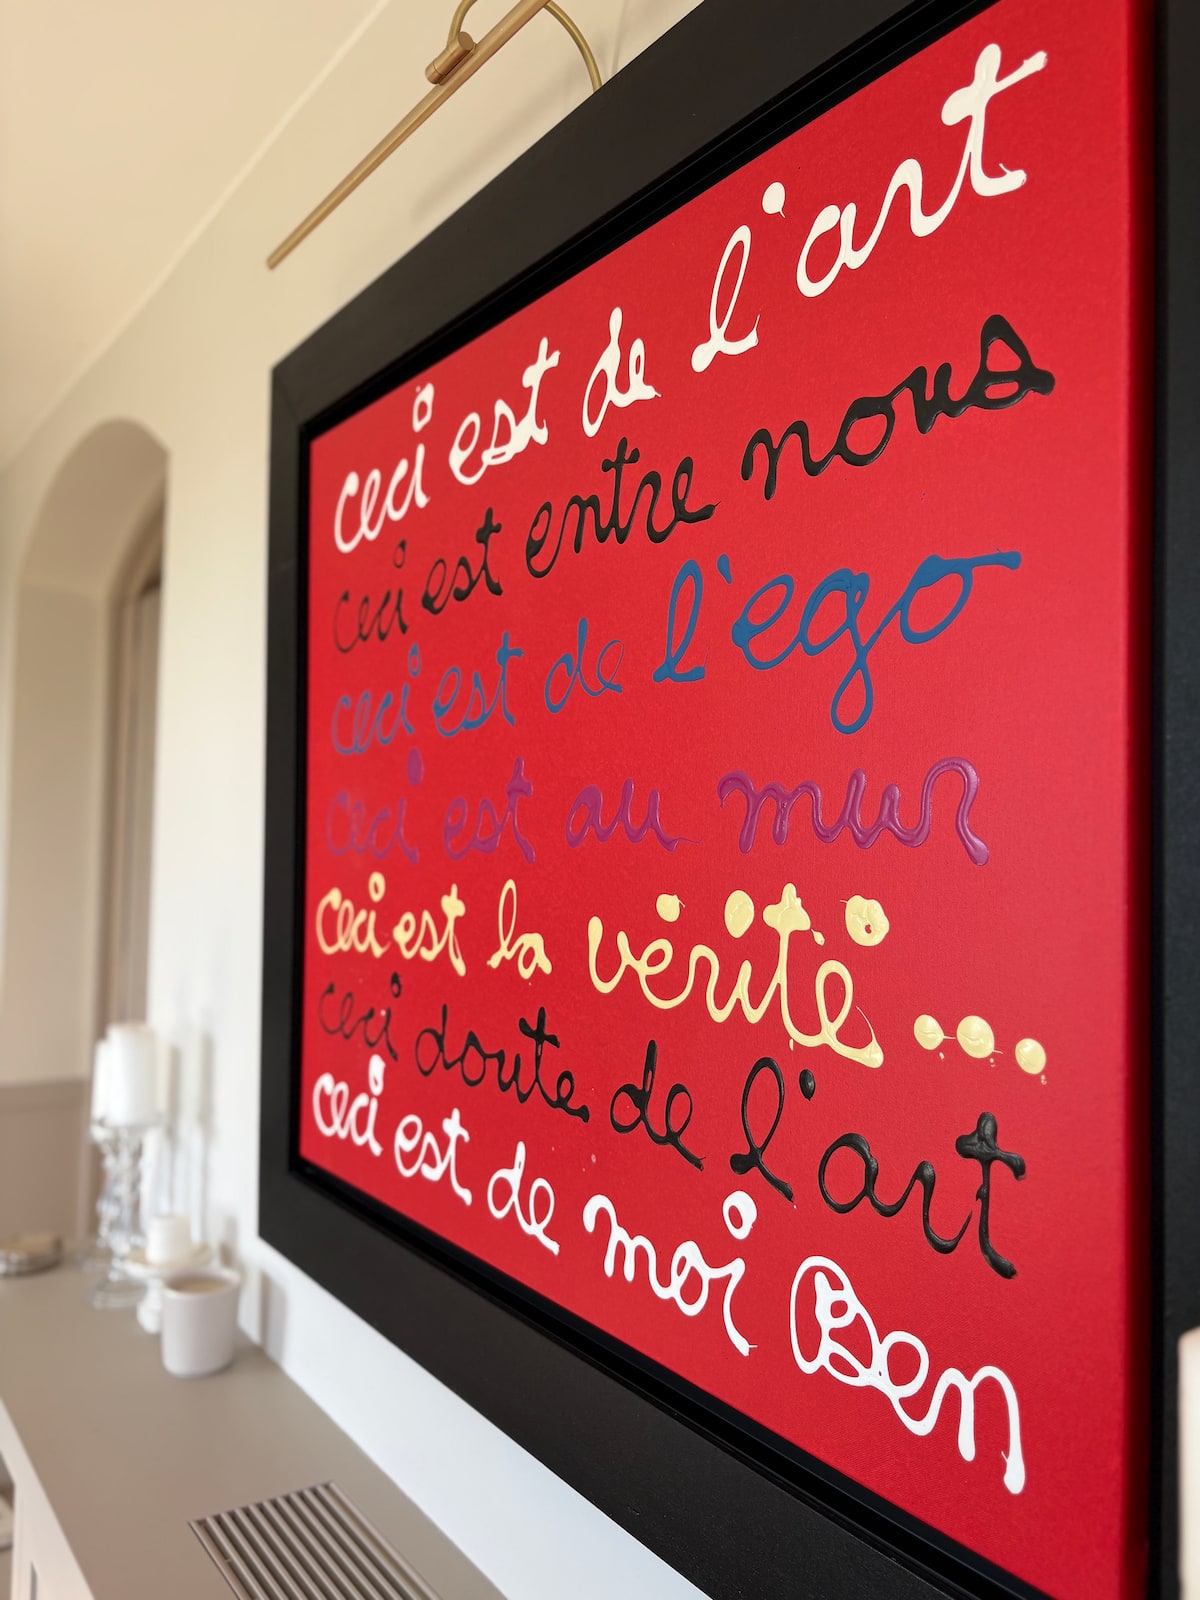 ceci est de l'art
ceci est entre nous
ceci est de l'ego
ceci est au mur
ceci est la vérité ...
ceci doute de l'art
ceci est de moi Ben